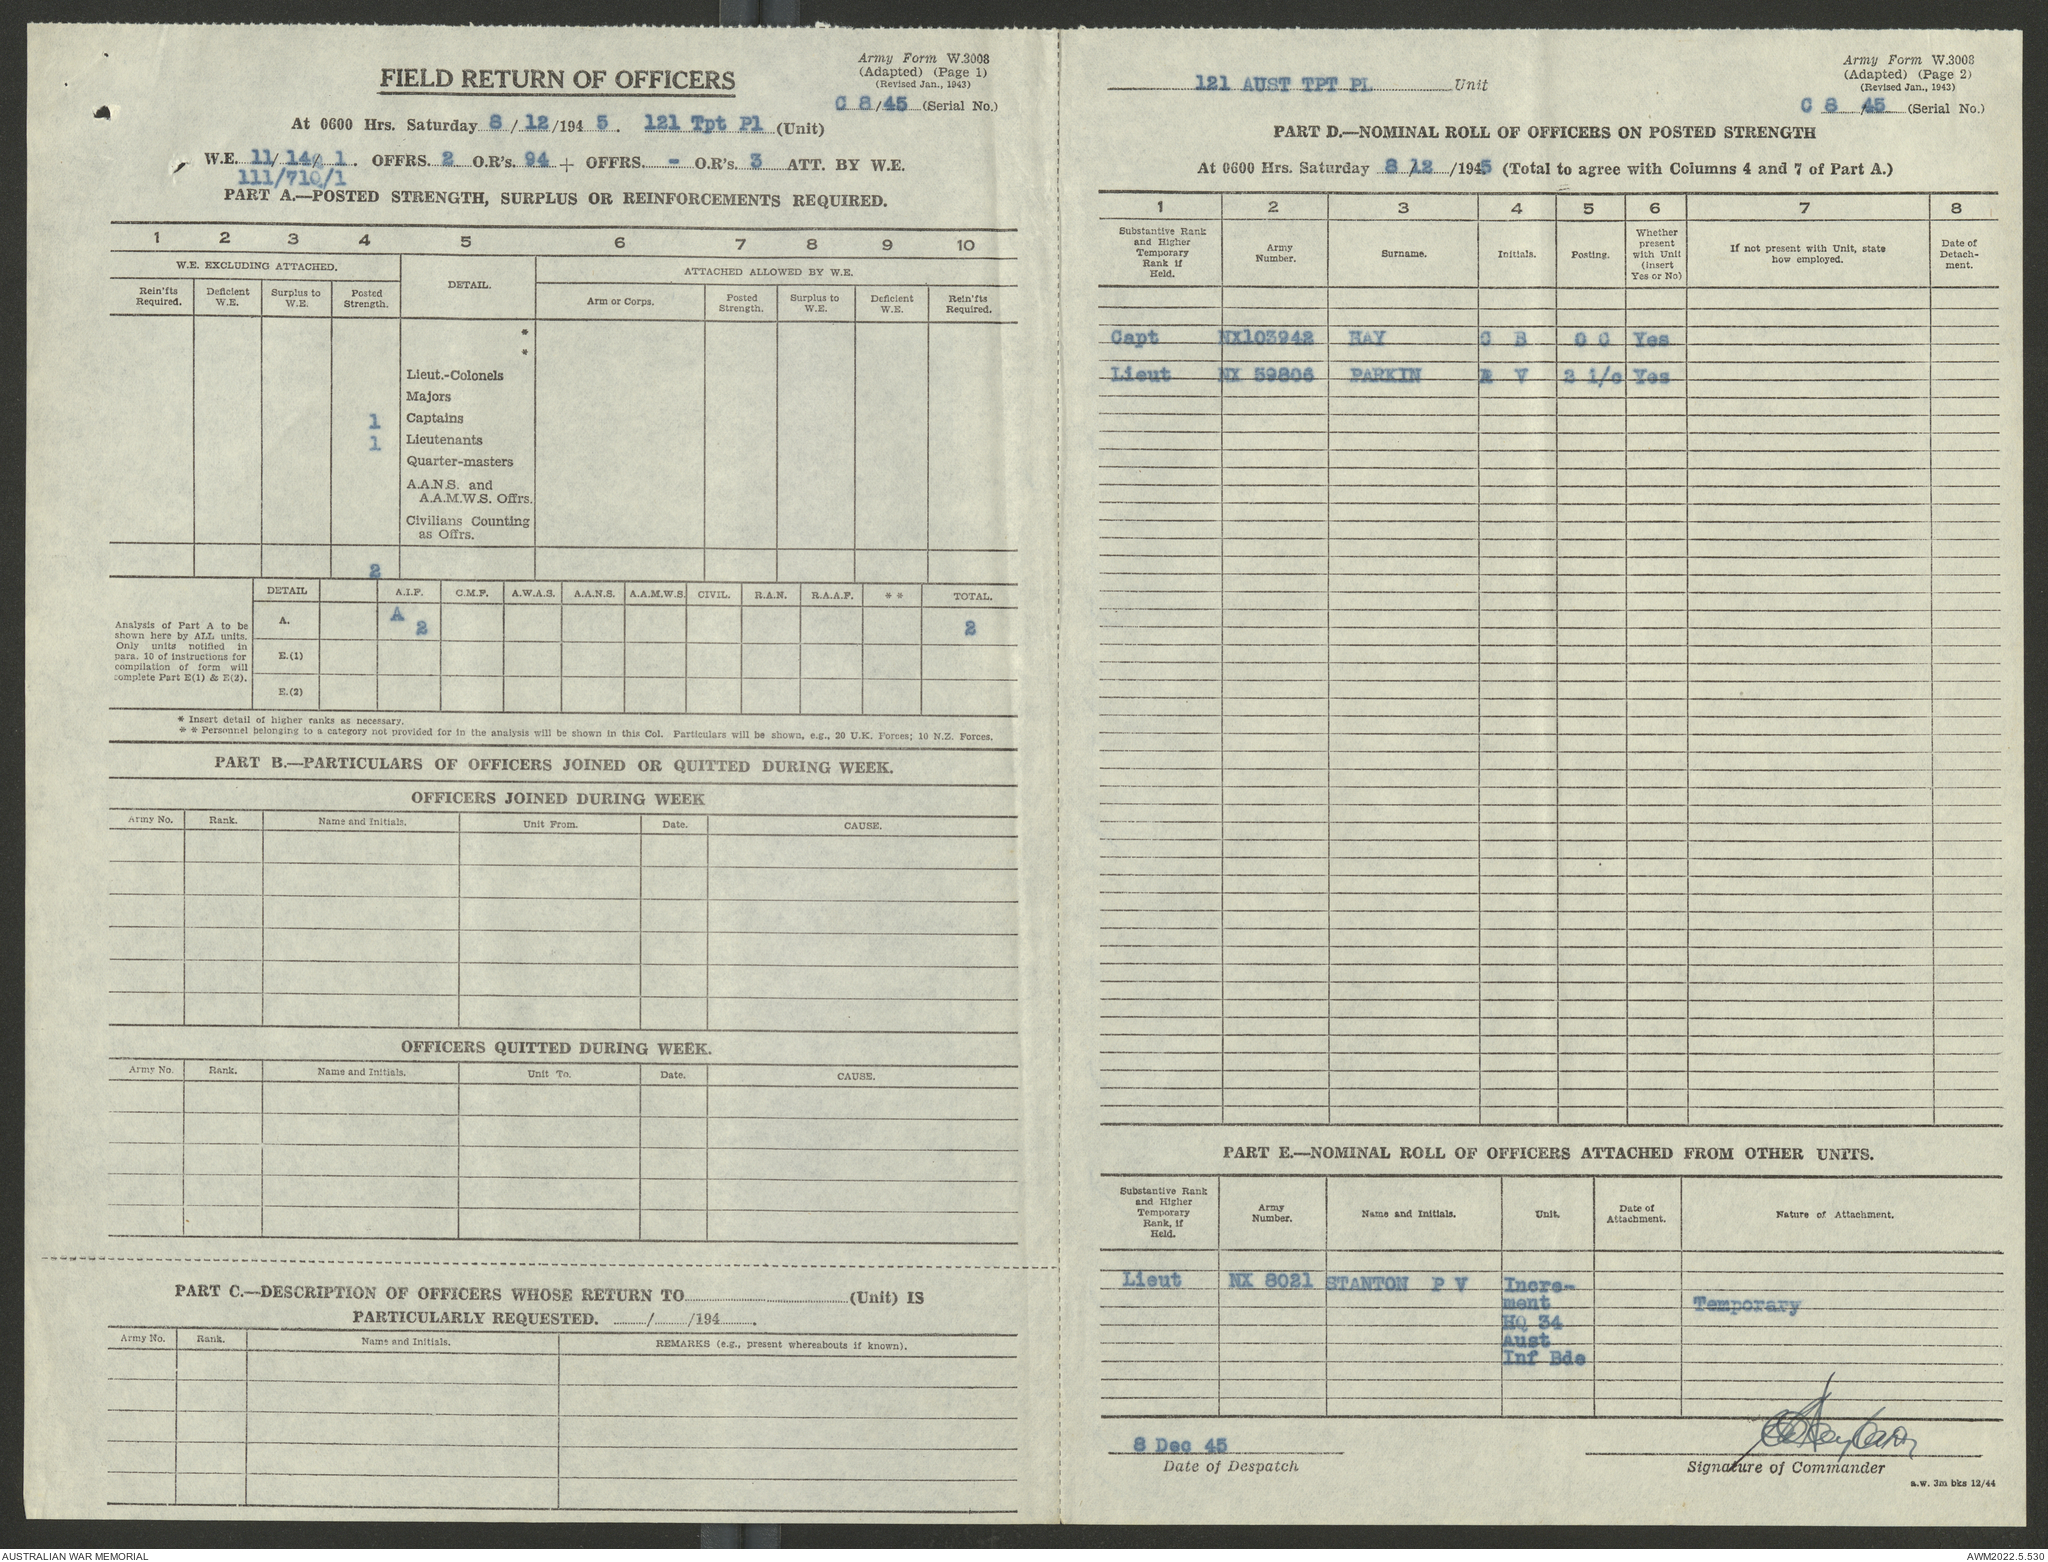 Army Form W.3008
(Adapted) (Page 1)
(Revised Jan., 1943)
FIELD RETURN OF OFFICERS
C 8/45 (Serial No.)
At 0600 Hrs. Saturday 8/12/1945. 121 Tpt Pl (Unit)
W.E. 11/14/1. OFFRS. 2 O.R's. 94 + OFFRS. - O.R's. 3 ATT. BY W.E.
111/710/1
PART A.—POSTED STRENGTH, SURPLUS OR REINFORCEMENTS REQUIRED.
1 2 3 4 5 6 7 8 9 10
W.E. EXCLUDING ATTACHED. DETAIL. ATTACHED ALLOWED BY W.E.
Rein'fts Required. Deficient W.E. Surplus to W.E. Posted Strength. Arm or Corps. Posted Strength. Surplus to W.E. Deficient W.E. Rein'fts Required.
*
*
Lieut.-Colonels
Majors
1 Captains
1 Lieutenants
Quarter-masters
A.A.N.S. and
A.A.M.W.S. Offrs.
Civilians Counting
as Offrs.
2
DETAIL A.I.F. C.M.F. A.W.A.S. A.A.N.S. A.A.M.W.S. CIVIL. R.A.N. R.A.A.F. * * TOTAL.
Analysis of Part A to be
shown here by ALL units.
Only units notified in
para. 10 of instructions for
compilation of form will
complete Part E(1) & E(2).
A. A 2 2
E.(1)
E.(2)
* Insert detail of higher ranks as necessary.
* * Personnel belonging to a category not provided for in the analysis will be shown in this Col. Particulars will be shown, e.g., 20 U.K. Forces; 10 N.Z. Forces.
PART B.—PARTICULARS OF OFFICERS JOINED OR QUITTED DURING WEEK.
OFFICERS JOINED DURING WEEK
Army No. Rank. Name and Initials. Unit From. Date. CAUSE.
OFFICERS QUITTED DURING WEEK.
Army No. Rank. Name and Initials. Unit To. Date. CAUSE.
PART C.—DESCRIPTION OF OFFICERS WHOSE RETURN TO (Unit) IS
PARTICULARLY REQUESTED. / /194 .
Army No. Rank. Name and Initials. REMARKS (e.g., present whereabouts if known).
Army Form W.3008
(Adapted) (Page 2)
(Revised Jan., 1943)
121 AUST TPT PL Unit
C 8/45 (Serial No.)
PART D.—NOMINAL ROLL OF OFFICERS ON POSTED STRENGTH
At 0600 Hrs. Saturday 8/12/1945 (Total to agree with Columns 4 and 7 of Part A.)
1 2 3 4 5 6 7 8
Substantive Rank and Higher Temporary Rank if Held. Army Number. Surname. Initials. Posting. Whether present with Unit (insert Yes or No) If not present with Unit, state how employed. Date of Detach-ment.
Capt NX103942 HAY C B O C Yes
Lieut NX 59806 PARKIN R V 2 i/c Yes
PART E.—NOMINAL ROLL OF OFFICERS ATTACHED FROM OTHER UNITS.
Substantive Rank and Higher Temporary Rank, if Held. Army Number. Name and Initials. Unit. Date of Attachment. Nature of Attachment.
Lieut NX 8021 STANTON P V Incre-
ment Temporary
HQ 34
Aust
Inf Bde
8 Dec 45
Date of Despatch
Signature of Commander
a.w. 3m bks 12/44
AUSTRALIAN WAR MEMORIAL
AWM2022.5.530